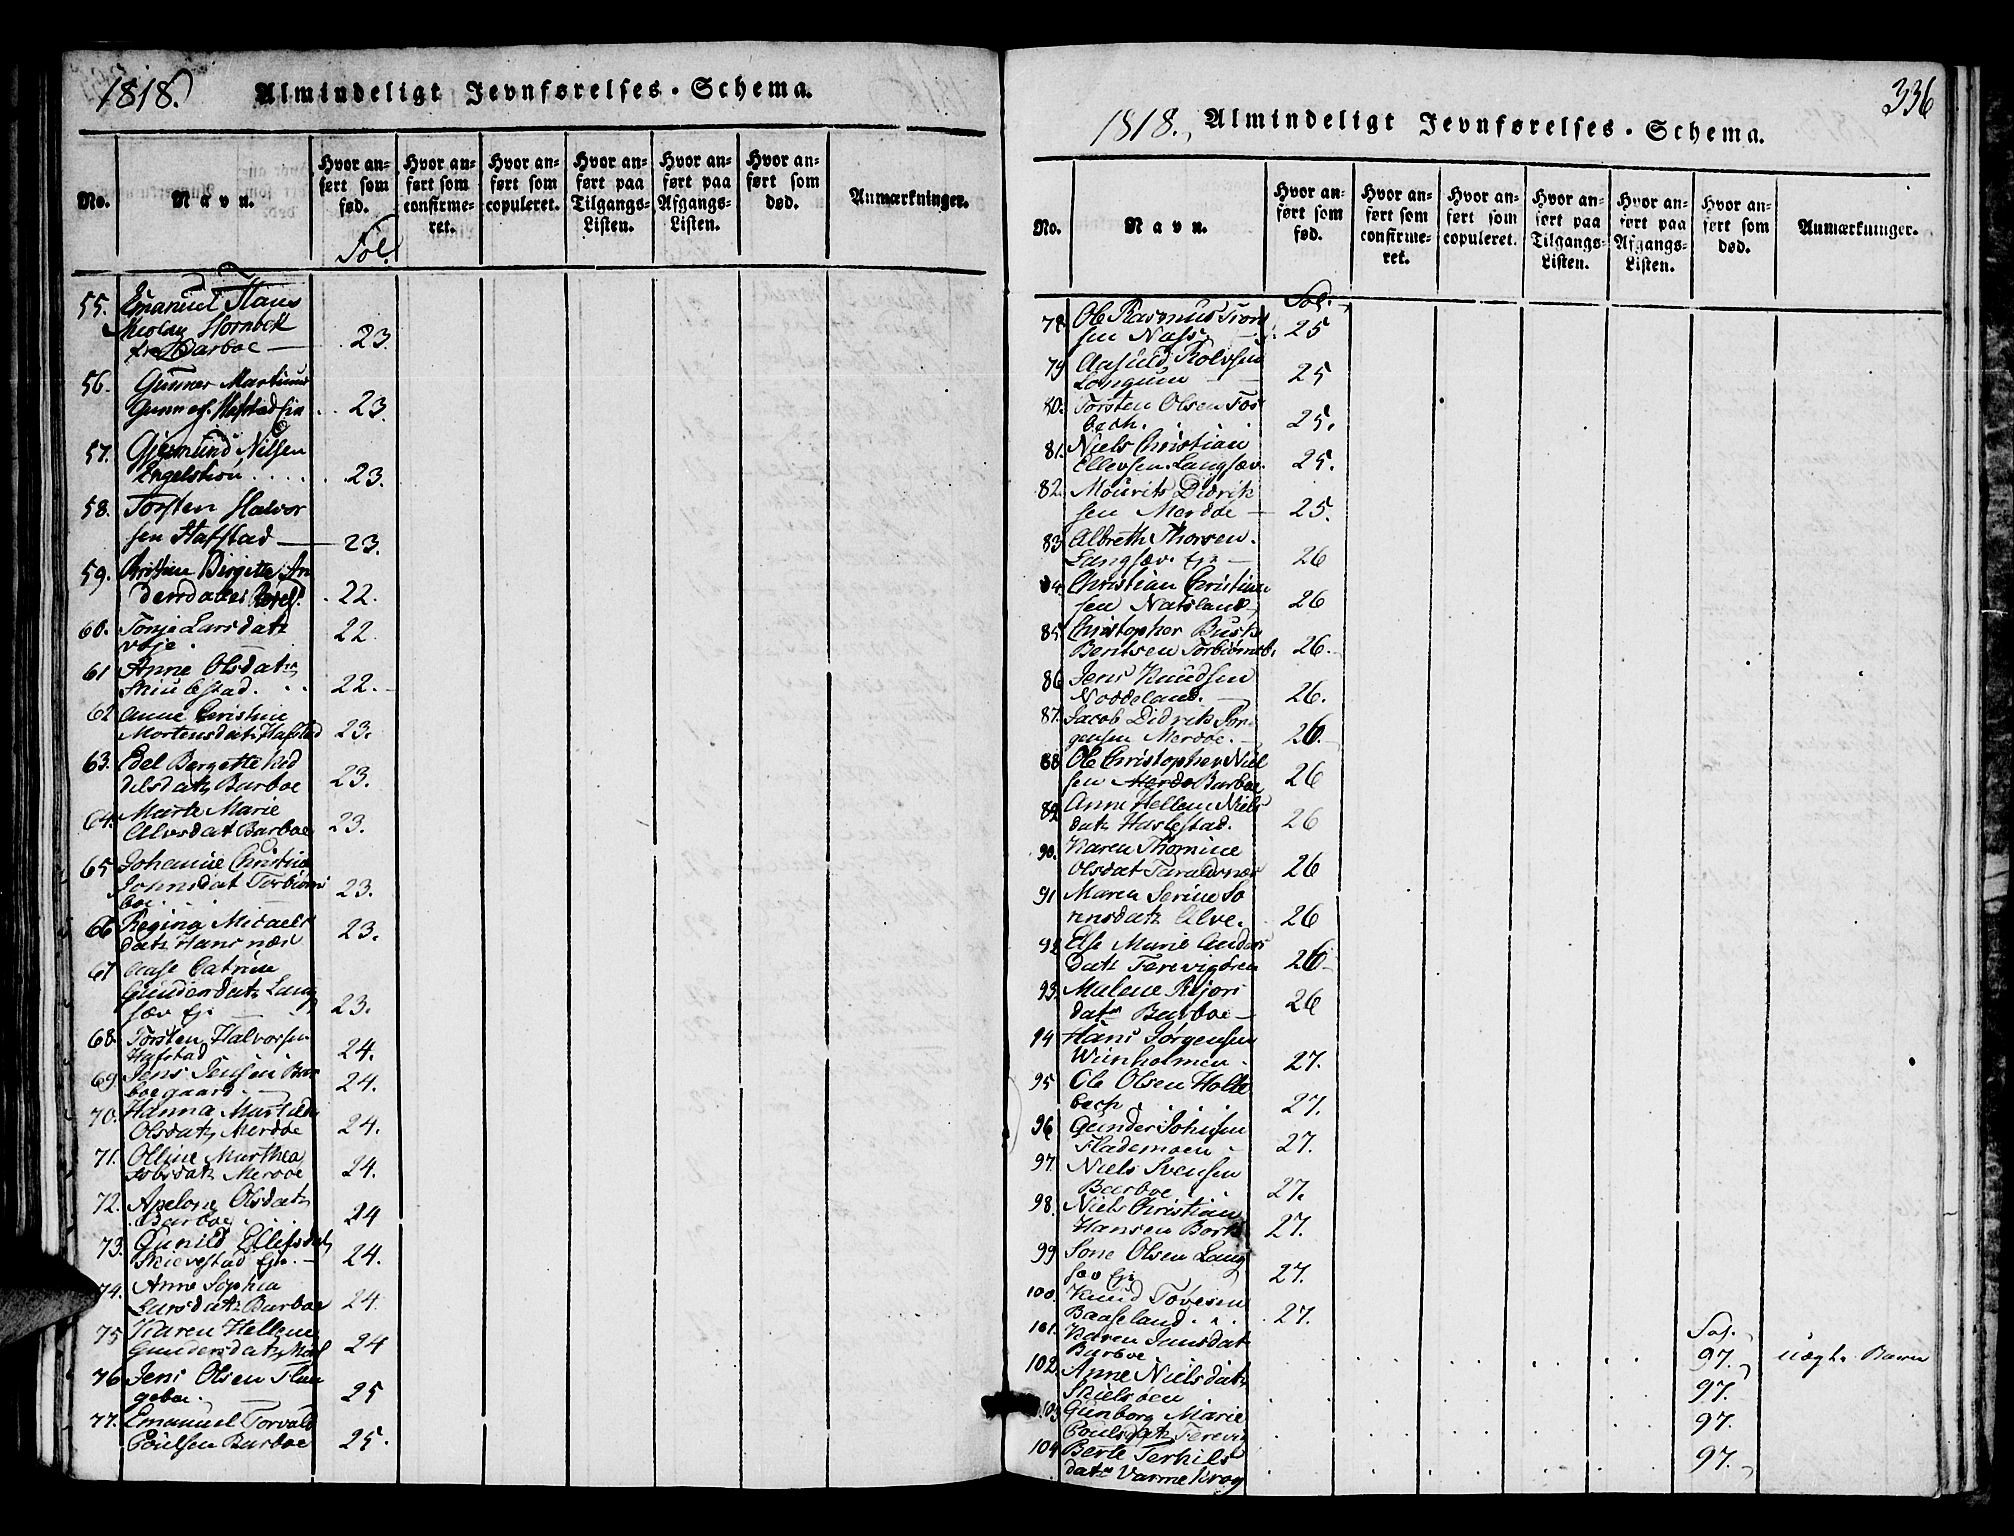 1818. Almindeligt Jevnførelses-Schema.
No. Navn. Hvor anført som fød. Hvor anført som confirmeret. Hvor anført som copuleret. Hvor anført paa Tilgangs-Listen. Hvor anført paa Afgangs-Listen. Hvor anført som død. Anmærkninger.
Fol.
55. Emanuel Hans
Nicolay Hornbek
fra Barboe — 23.
56. Gunner Martinus
Hafstad 23.
57. Gjermund Nilsen
Engelstion . . . . 23.
58. Torsten Halvor
sen Hafstad — 23.
59. Birgitte An
22.
60. Tonje Larsdatr
22.
61 Anne Olsdatr
22.
62 Anne Christine
Mortensdatr Hafstad 23.
63. Edel Bergette
Barboe 23.
64. Marte Marie
Alvsdat Barboe 23.
65 Johanne Christine
Johnsdat Torbiørns
boe. 23.
66 Regina Micaels
datr Hans næs 23.
67 Aase Catrine
Gundersdatr Lang
sæv Ej. 23.
68. Torsten Halvorsen
Hafstad 24.
69. Jens Jensen Bar
boegaard 24.
70. Hanna
Olsdatr Merdøe 24.
71. Olline Marthea
Merdøe 24.
72. Apelone Olsdatr
Barboe 24
73. Gunild Ellefsdatr
Skievestad Ej. 24.
74. Anne Sophia
Larsdatr Barboe 24.
75 Karen Hellene
Gundersdatr 24
76 Jens Olsen Hau
geboe. 25
77. Emanuel Torvald
Poulsen Barboe 25.
336
1818. Almindeligt Jevnførelses-Schema.
No. Navn. Hvor anført som fød. Hvor anført som confirmeret. Hvor anført som copuleret. Hvor anført paa Tilgangs-Listen. Hvor anført paa Afgangs-Listen. Hvor anført som død. Anmærkninger.
Fol.
78 Ole Rasmus
sen Næss 25
79 Rolvsen
Longum 25
80. Torsten Olsen Fos
bech. 25.
81. Niels Christian
Ellevsen Langsæv. 25.
82. Mourits Didrik
sen Merdøe — 25.
83 Albreth Thorsen
Langsæv. Ej. — 26
84. Christian Christian
sen Natsland 26
85. Christopher Busk
Bentsen Torbiørnsb. 26.
86 Jens Knudsen
Noddeland. 26.
87. Jacob Didrik Jør
gensen Merdøe. 26.
88 Ole Christopher Niel
sen Merdø Barboe 26
89 Anne Hellene Niels
datr Harlestad. 26
90. Karen Thomine
Olsdat Taraldsnæs 26
91 Maren Serine So
rensdatr Alve. 26
92 Else Marie Anders
datr Ferevigdren 26
93. Malene
datr Barboe — 26
94 Hans Jørgensen
27.
95 Ole Olsen Holte
bech. 27.
96 Gunder Johnsen
Flademoen 27.
97. Niels Svensen
Barboe. 27.
98. Niels Christian
Hansen 27.
99 Sone Olsen Lang
sæv Ej. 27.
100. Knud Tovesen
Baaseland. . . 27.
Fol.
101. Karen Jansdatr
Barboe 97. uægte Barn
102. Anne Nielsdatr
97.
103 Gunborg Marie
Poulsdatr 97.
104 Berte Terkils
datr Varme krog 97.